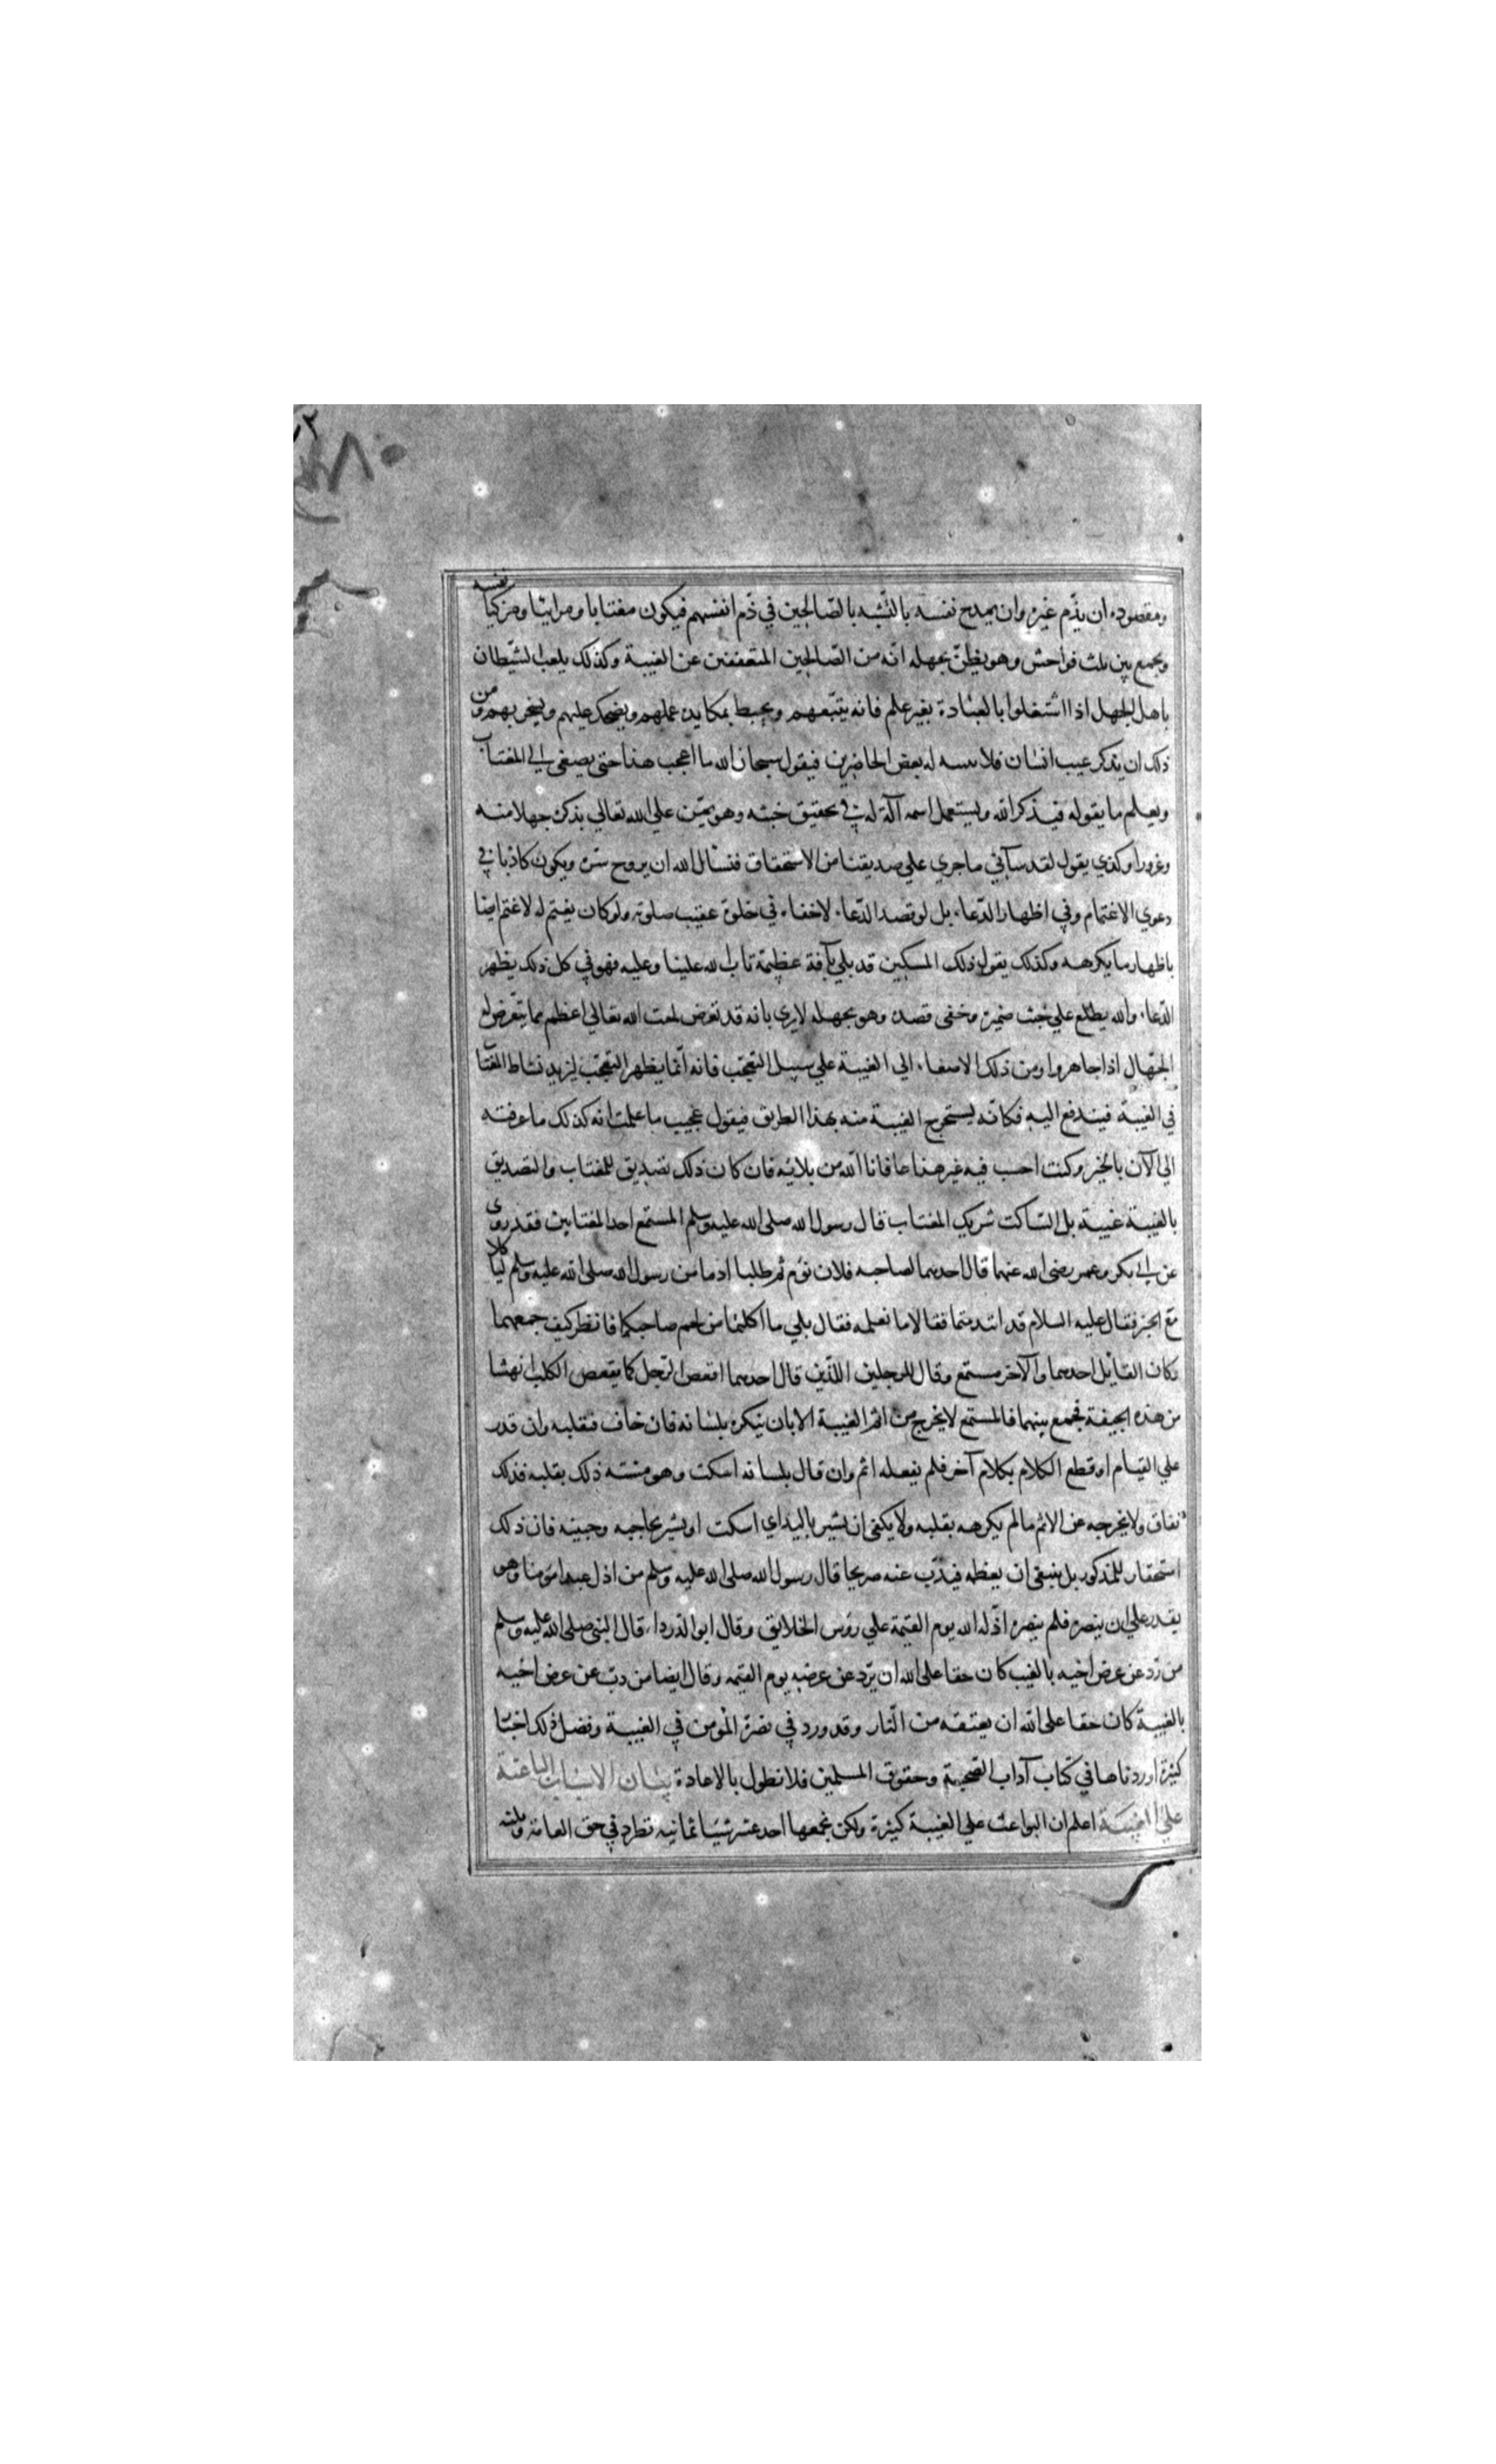 ومقصوده ان يذّم غيره وان يمدح نفسه بالتشبه بالصّالحين في ذّم انفسهم فيكون مغتابا ومرائيا ومزكيا نفسه
ويجمع بين ثلث فواحش وهو يظنّ بجهله انّه من الصّالحين المتعففين عن الغيبة وكذلك يلعب الشيطان
باهل الجهل اذا اشتغلوا بالعبادة بغير علم فانه يتبعهم ويحبط بمكايده عملهم ويضحك عليهم ويسخر بهم ومن
ذلك ان يذكر عيب انسان فلا له بعض الحاضرين فيقول سبحان الله ما اعجب هذا حتى يصغى الى المغتاب
ويعلم ما يقوله فيذكر الله ويستعمل اسمه آلة له في تحقيق خبثه وهو يمتن علي الله تعالي بذكره جهلا منه
وغرورا وكذي يقول لقد سآني ما جري علي صديقنا من الاستحقاق فنسأل الله ان يروح سره ويكون كاذبا في
دعوي الاغتمام وفي اظهار الدّعاء بل لو قصد الدّعاء لاخفاه في خلوة عقيب صلوته ولو كان يغتم له لاغتم ايضا
باظهار ما يكرهه وكذلك يقول ذلك المسكين قد بلي بآفة عظيمة تاب الله علينا وعليه فهو في كل ذلك يظهر
الدّعاء والله يطلع علي خبث ضميره وخفى قصده وهو بجهله لا يري بانه قد تعرض لمقت الله تعالي اعظم مما يتعرض له
الجهّال اذا جاهروا ومن ذلك الاصغاء الي الغيبة علي سبيل التعجّب فانه انّما يظهر التعجّب ليزيد نشاط المغتاب
في الغيبة فيندفع اليه فكانّه يستخرج الغيبة منه بهذا الطريق فيقول عجيب ما علمت انه كذلك ما عرفته
الى الآن بالخير وكنت احسب فيه غير هذا عافانا الله من بلائه فان كان ذلك تصديق للمغتاب والتصديق
بالغيبة غيبة بل الساكت شريك المغتاب قال رسول الله صلى الله عليه وسلم المستمع احد المغتابين فقد روى
عن ابي بكر وعمر رضى الله عنهما قال احدهما لصاحبه فلان نؤم ثم طلبا ادما من رسول الله صلى الله عليه وسلم ليأكلا
مع الخبز فقال عليه السلام قد ائتدمتما فقالا ما نعلمه فقال بلي ما اكلتما من لحم صاحبكما فانظر كيف جمعهما
وكان القائل احدهما والآخر مستمع وقال للرجلين اللّذين قال احدهما اقعص الرّجل كما يقعص الكلب انهشا
من هذه الجيفة فجمع بينهما فالمستمع لا يخرج من اثم الغيبة الا بان ينكره بلسانه فان خاف فبقلبه وان قدر
علي القيام او قطع الكلام بكلام آخر فلم يفعله اثم وان قال بلسانه اسكت وهو مشته ذلك بقلبه فذلك
نفاق ولا يخرجه عن الاثم مالم يكرهه بقلبه ولا يكفى ان يشير باليد اي اسكت او يشير بحاجبه وجبينه فان ذلك
استحقار للمذكور بل ينبغى ان يعظمه فيذبّ عنه صريحا قال رسول الله صلى الله عليه وسلم من اذل عبدا مؤمنا وهو
يقدر علي ان ينصره فلم ينصره اذّله الله يوم القيمة علي رؤس الخلايق وقال ابو الدرداء قال النبى صلى الله عليه وسلم
من ردّ عن عرض اخيه بالغيب كان حقا على الله ان يردّ عن عرضه يوم القيمه وقال ايضا من دبّ عن عرض اخيه
بالغيبة كان حقا على الله ان يعتقه من النّار وقد ورد في نصرة المؤمن في الغيبة وفضل ذلك اخبار
كثيرة اوردناها في كتاب آداب الصّحبة وحقوق المسلمين فلا نطول بالاعادة بيان الاسباب الباعثة
علي الغيبة اعلم ان البواعث علي الغيبة كثيرة ولكن نجمعها احد عشر شيئا ثمانيه تطرد في حق العامة وثلثه